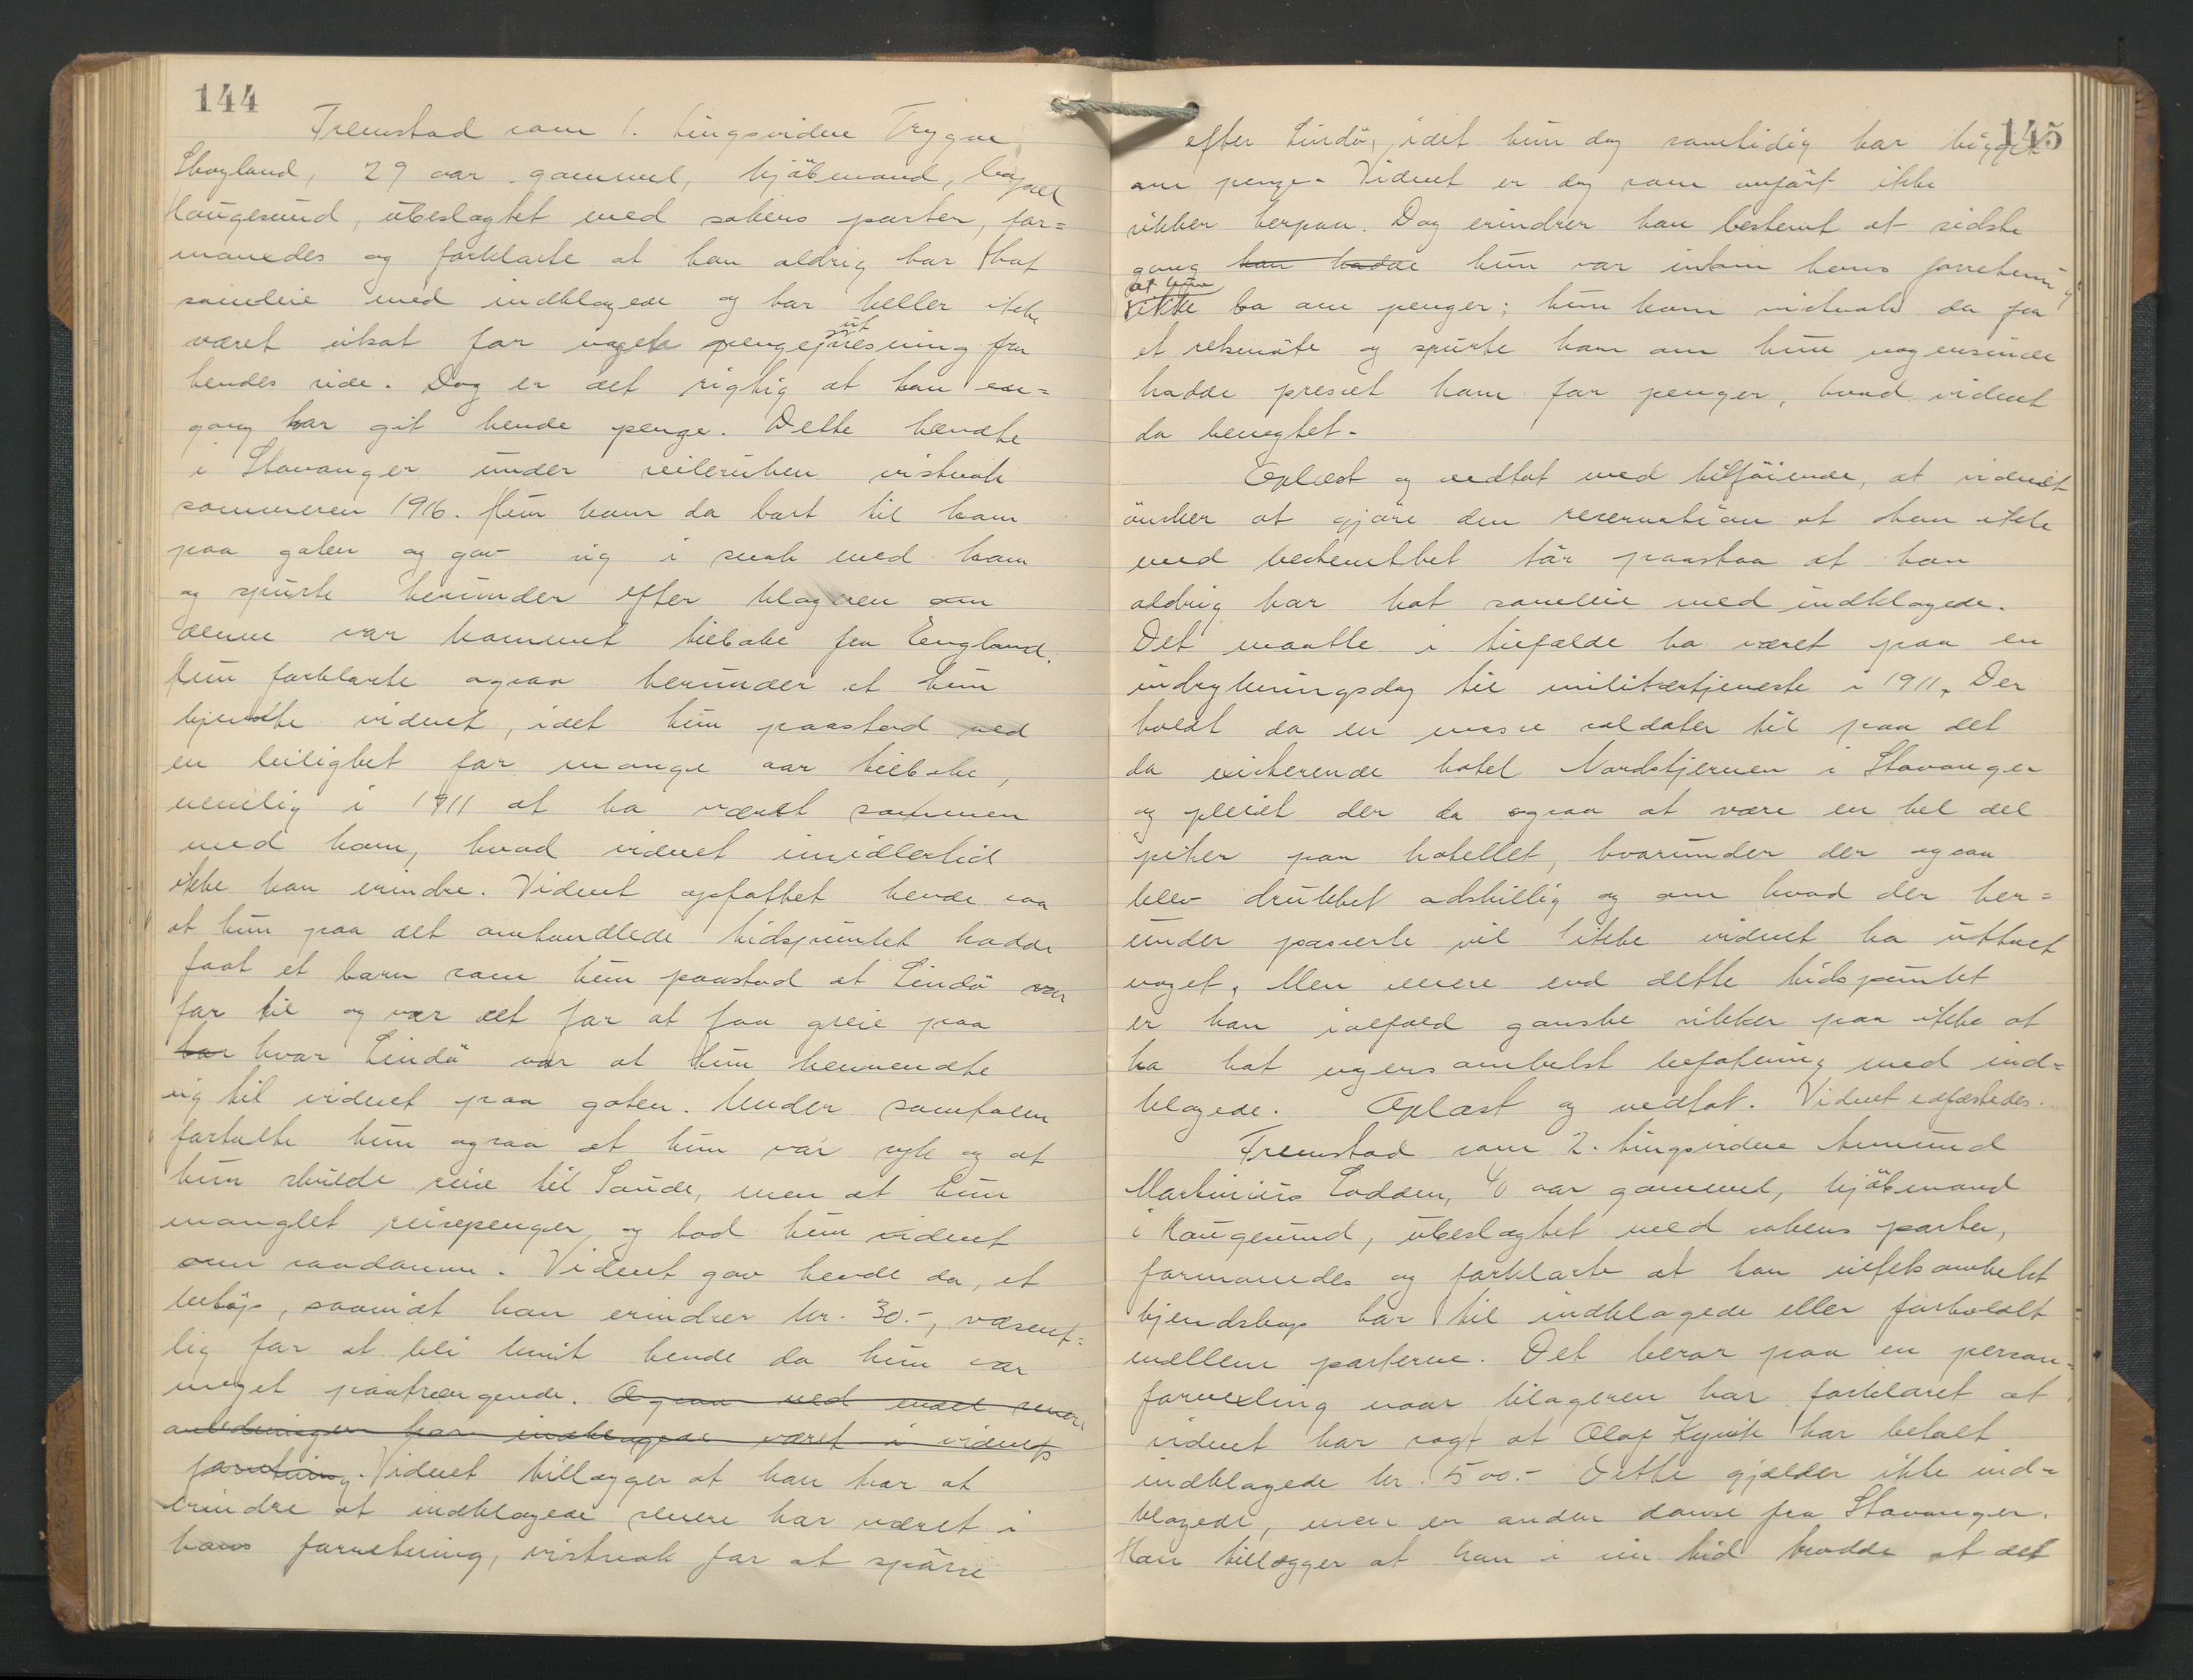 144
Fremstod som 1. tingsvidne Trygve
Skogland, 29 aar gammel, kjöbmand, bopæl
Haugesund, ubeslægtet med sakens parter, for=
manedes og forklarte at han aldrig har hat
samleie med indklagede og har heller ikke
været utsat for noget pengeutpresning fra
hendes side. Dog er det rigtig at han en=
gang har git hende penge. Dette hændte
i Stavanger under seileruken vistnok
sommeren 1916. Hun kom da bort til ham
paa gaten og gav sig i snak med ham
og spurte herunder efter klageren om
denne var kommet tilbake fra England.
Hun forklarte ogsaa herunder at hun
kjendte vidnet, idet hun paastod ved
en leilighet for mange aar tilbake,
nemlig i 1911 at ha været sammen
med ham, hvad vidnet imidlertid
ikke kan erindre. Vidnet opfattet hende saa
at hun paa det omhandlede tidspunkt hadde
faat et barn som hun paastod at Lindö var
far til og var det for at faa greie paa
har hvor Lindö var at hun henvendte
sig til vidnet paa gaten. Under samtalen
fortalte hun ogsaa at hun var syk og at
hun skulde reise til Saude, men at hun
manglet reisepenger og bad hun vidnet
om saadanne. Vidnet gav hende da, et
belöp, saavidt han erindrer kr. 30.-, væsent=
lig for at bli kvit hende da hun var
meget paatrængende. Ogsaa ved endel senere
anledninger har indklagede været i vidnets
forretning. Vidnet tillægger at han har at
erindre at indklagede senere har været i
hans forretning, vistnok for at spörre
145
efter Lindö, idet hun dog samtidig har tigget
om penge. Vidnet er dog som anfört ikke
sikker herpaa. Dog erindrer han bestemt at sidste
gang han hadde hun var indom hans forretning
at hun
ikke ba om penger; hun kom vistnok da fra
et retsmöte og spurte ham om hun nogensinde
hadde presset ham for penger, hvad vidnet
da benegtet.
Oplæst og vedtat med tilföiende, at vidnet
önsker at gjöre den reservation at han ikke
med bestemthet tör paastaa at han
aldrig har hat samleie med indklagede.
Det maatte i tilfælde ha været paa en
indrykningsdag til militærtjeneste i 1911. Der
holdt da en masse soldater til paa det
da existerende hotel Nordstjernen i Stavanger
og pleiet der da ogsaa at være en hel del
piker paa hotellet, hvorunder der ogsaa
blev drukket adskillig og om hvad der her=
under passerte vil ikke vidnet ha uttalt
noget. Men senere end dette tidspunkt
er han ialfald ganske sikker paa ikke at
ha hat nogensomhelst befatning med ind=
klagede. Oplæst og vedtat. Vidnet edfæstedes.
Fremstod som 2. tingsvidne Amund
Martinius Lodden, 40 aar gammel, kjöbmand
i Haugesund, ubeslægtet med sakens parter,
formanedes og forklarte at han intetsomhelst
kjendskap har til indklagede eller forholdet
mellem parterne. Det beror paa en person=
forvexling naar klageren har forklaret at
vidnet har sagt at Olaf Kyvik har betalt
indklagede kr. 500.- Dette gjælder ikke ind=
klagede, men en anden dame fra Stavanger.
Han tillægger at han i sin tid trodde at det